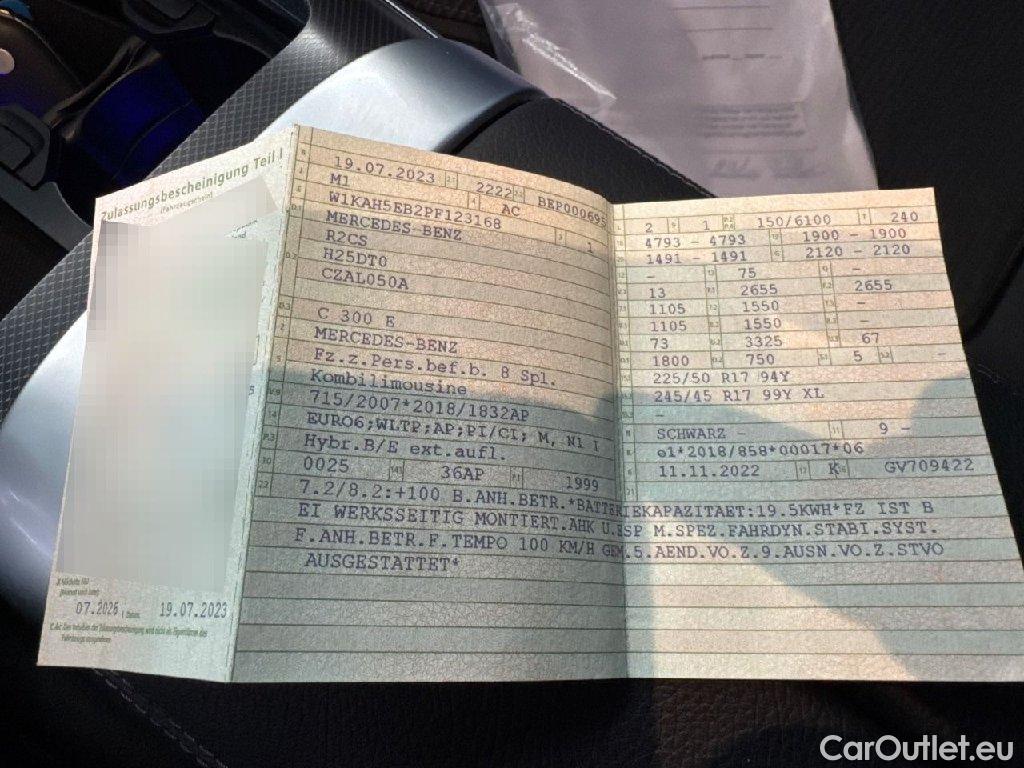 Zulassungsbescheinigung Teil I
(Fahrzeugschein)
07.2026 19.07.2023
19.07.2023 2222 BEP000695
M1 AC
W1KAH5EB2PF123168 1
MERCEDES-BENZ
R2CS
H25DT0
CZAL050A
C 300 E
MERCEDES-BENZ
Fz.z.Pers.bef.b. 8 Spl.
Kombilimousine
715/2007*2018/1832AP
EURO6;WLTP;AP;PI/CI; M, N1 I
Hybr.B/E ext.aufl.
0025 36AP 1999
2 1 150/6100 240
4793 - 4793 1900 - 1900
1491 - 1491 2120 - 2120
- 75 -
13 2655 2655
1105 1550 -
1105 1550 -
73 3325 67
1800 750 5 -
225/50 R17 94Y
245/45 R17 99Y XL
-
SCHWARZ - 9 -
e1*2018/858*00017*06
11.11.2022 K GV709422
7.2/8.2:+100 B.ANH.BETR.*BATTERIEKAPAZITAET:19.5KWH*FZ IST B
EI WERKSSEITIG MONTIERT.AHK U.ESP M.SPEZ.FAHRDYN.STABI.SYST.
F.ANH.BETR.F.TEMPO 100 KM/H GEM.5.AEND.VO.Z.9.AUSN.VO.Z.STVO
AUSGESTATTET*
CarOutlet.eu